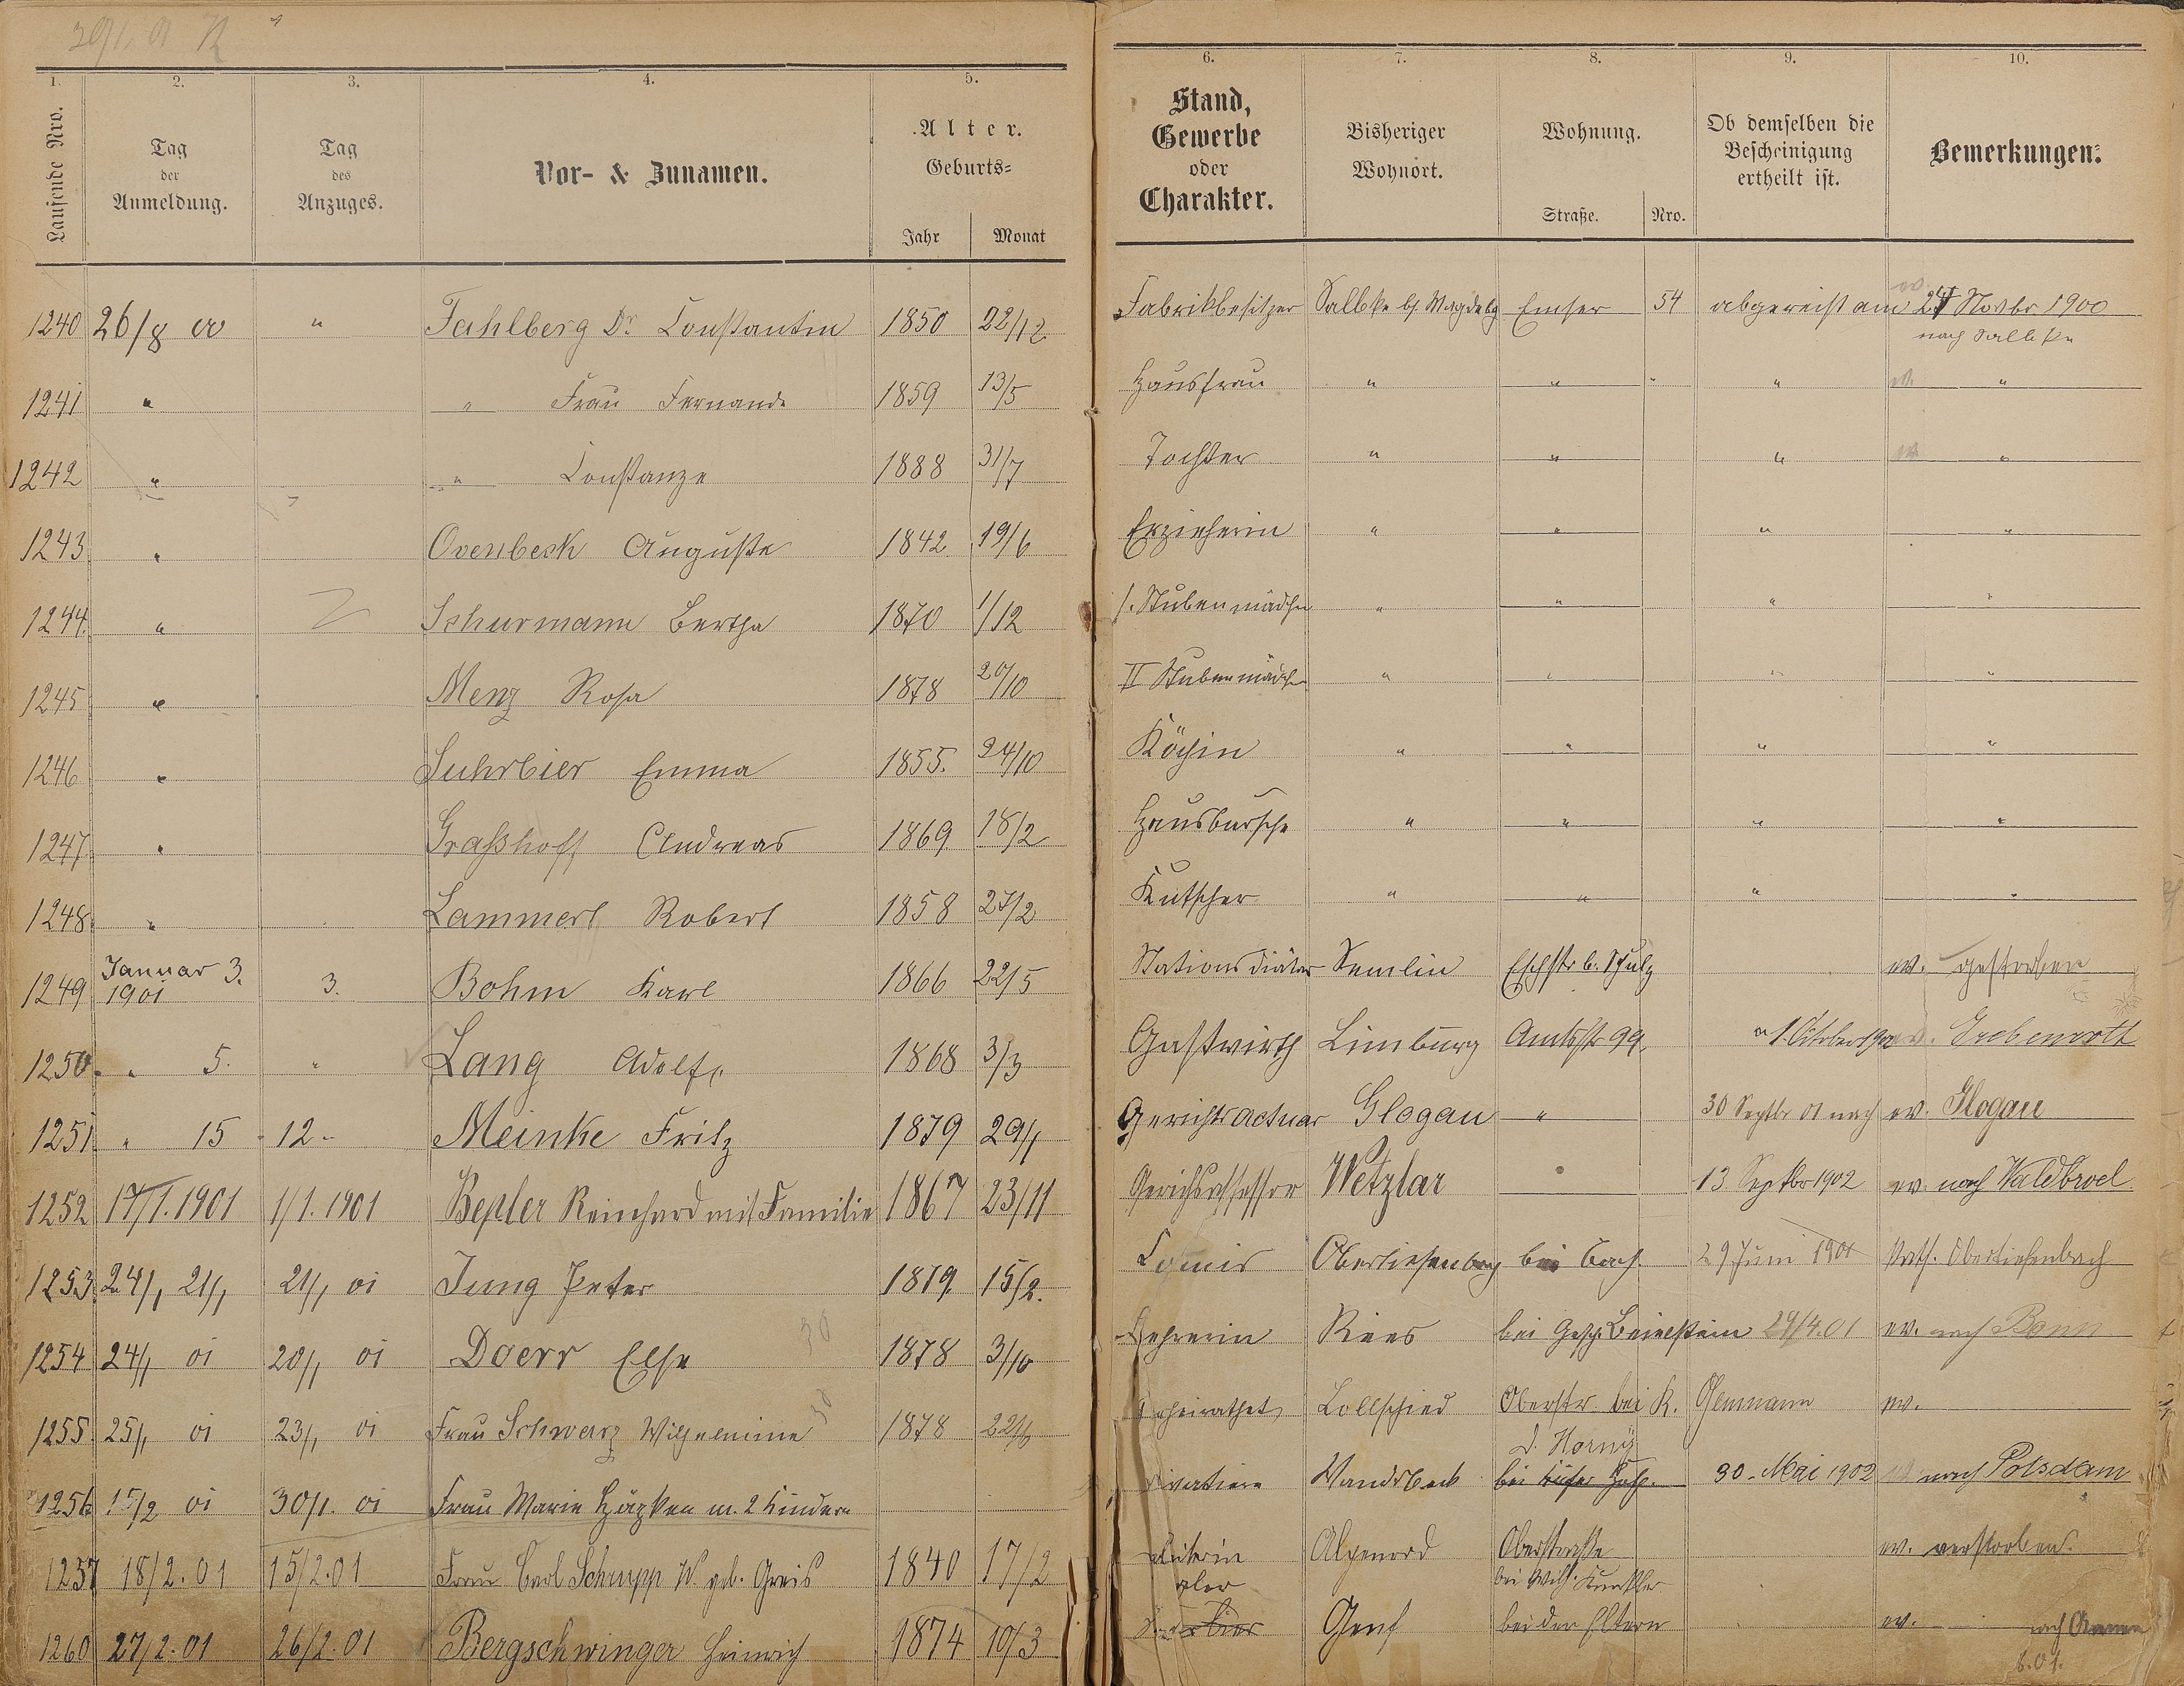 1. 2. 3. 4. 5. 6. 7. 8. 9. 10.
Laufende Nro.
Tag der Anmeldung.
Tag des Anzuges.
Vor- & Zunamen.
Alter.
Geburts=
Jahr Monat
Stand, Gewerbe oder Charakter.
Bisheriger Wohnort.
Wohnung.
Straße. Nro.
Ob demselben die Bescheinigung ertheilt ist.
Bemerkungen.
1240 26/8 00 " Fahlberg Dr. Constantin 1850 22/12 Fabrikbesitzer Salbke b/. Magdebg Emser 54 abgereist am 24 Novbr 1900
nach Salbke
1241 " " Frau Fernande 1859 13/5 Hausfrau " " " " "
1242 " " Constanze 1888 31/7 Tochter " " " "
1243 " Ovenbeck Auguste 1842 19/6 Erzieherin " " " "
1244. " Schurmann Bertha 1870 1/12 I. Stubenmädchen " " " "
1245 " Menz Rosa 1878 20/10 II Stubenmädchen " " " "
1246 " Suhrbier Emma 1855. 24/10 Köchin " " " "
1247 " Graßhoff Andreas 1869 18/2 Hausbursche " " " "
1248 " Lammert Robert 1858 27/2 Kutscher " " " "
1249 Januar 3. 1901 3. Bohm Karl 1866 22/5 Stationsdiätar Semlin Eschstr b. Schulz ev. gestorben
1250 " 5. " Lang Adolf 1868 3/3 Gastwirth Limburg Amtsstr 99. 1. October 1900 ev. Grebenroth
1251 " 15 12 " Meinke Fritz 1879 29/1 Gerichtsactuar Glogau " 30 Septbr 01 nach ev. Glogau
1252 17/1. 1901 1/1. 1901 Bepler Reinhard mit Familie 1867 23/11 Gerichtsassessor Wetzlar " 13 Septbr 1902 ev. nach Waldbroel
1253 24/1 21/1 21/1 01 Jung Peter 1879 15/2. Commis Obertiefenbach bei Bach. 29 Juni 1901 kath. Obertiefenbach
1254 24/1 01 20/1 01 Doerr Else 1878 3/10 Lehrerin Rees bei Gesch. Beielstein 29/4.01 ev. nach Bonn
1255 25/1 01 23/1 01 Frau Schwarz Wilhelmine 1878 22/6 Verheirathet Lollschied Oberstr. bei K. ev.
1256 15/2 01 30/1. 01 Frau Marie Häpken m. 2 Kindern Wandsbeck D. Horny bei 30. Mai 1902 nach Potsdam
1257 18/2. 01 15/2. 01 Frau Carl Schupp W. geb. Greis 1840 17/2 Algenrod Oberstrasse
bei Wilh. Kunkler ev. verstorben.
1260 27/2. 01 26/2. 01 Bergschwinger Heinrich 1874 10/3 Genf bei den Eltern ev. nach